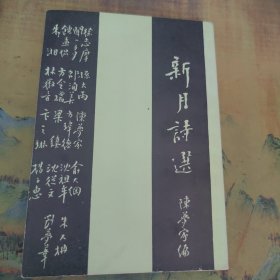 新月詩選
陳夢家編
徐志摩
聞一多
饒孟侃
朱湘
孫大雨
邵洵美
方令孺
林徽音
陳夢家
方瑋德
梁鎮
卞之琳
俞大綱
沈祖牟
沈從文
楊子惠
朱大枬
劉夢葦